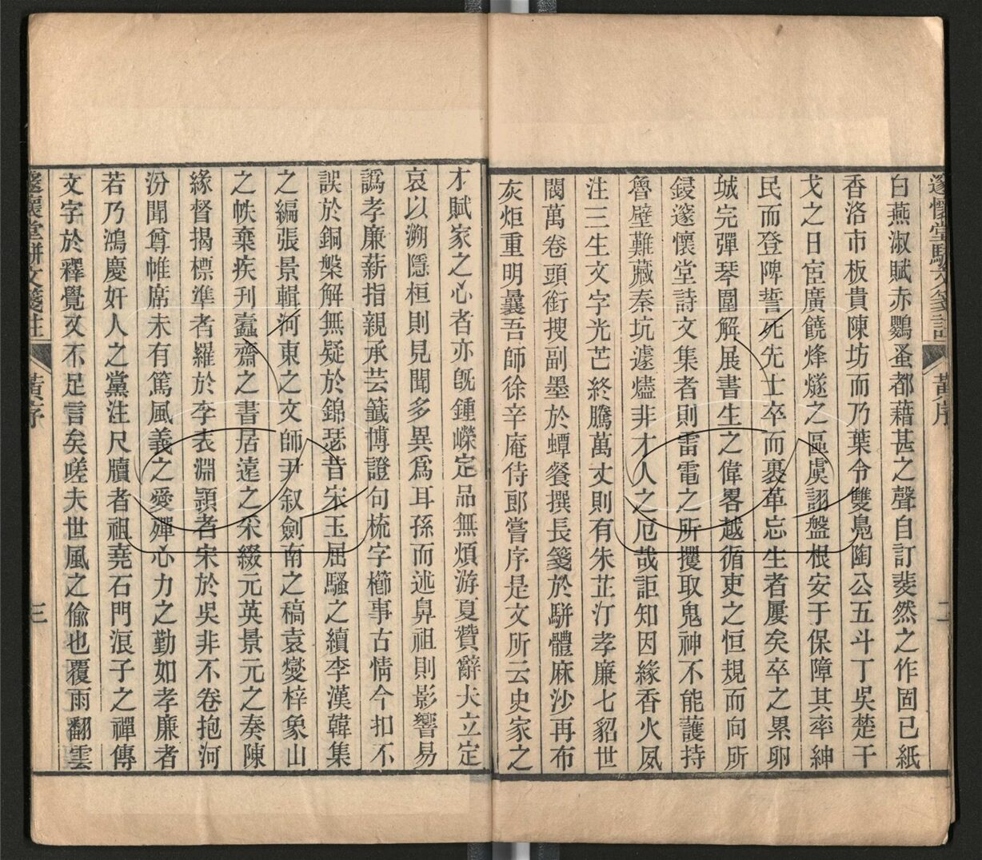 邃懷堂駢文箋註 黃序 二
白燕淑賦赤鸚蚤都藉甚之聲自訂斐然之作固已紙
香洛市板貴陳坊而乃葉令雙鳧陶公五斗丁吳楚干
戈之日宦廣饒烽燧之區虞詡盤根安于保障其率紳
民而登陴誓死先士卒而裹革忘生者屢矣卒之累卵
城完彈琴圍解展書生之偉畧越循吏之恒規而向所
鋟邃懷堂詩文集者則雷電之所攫取鬼神不能護持
魯壁難藏秦坑遽燼非才人之厄哉詎知因緣香火夙
注三生文字光芒終騰萬丈則有朱芷汀孝廉七貂世
閥萬卷頭銜搜副墨於蟫餐撰長箋於駢體麻沙再布
灰炬重明曩吾師徐辛庵侍郎嘗序是文所云史家之
才賦家之心者亦旣鍾嶸定品無煩游夏贊辭大立定
哀以溯隱桓則見聞多異爲耳孫而述鼻祖則影響易
譌孝廉薪指親承芸籤博證句梳字櫛事古情今扣不
誤於銅槃解無疑於錦瑟昔宋玉屈騷之續李漢韓集
之編張景輯河東之文師尹叙劍南之稿袁燮梓象山
之帙棄疾刋蠹齋之書居遠之采綴元英景元之奏陳
緣督揭標準者羅於李表淵頴者宋於吳非不卷抱河
汾聞尊帷席未有篤風義之愛殫心力之勤如孝廉者
若乃鴻慶奸人之黨注尺牘者祖堯石門浪子之禪傳
文字於釋覺文不足言矣嗟夫世風之偷也覆雨翻雲
邃懷堂駢文箋註 黃序 三